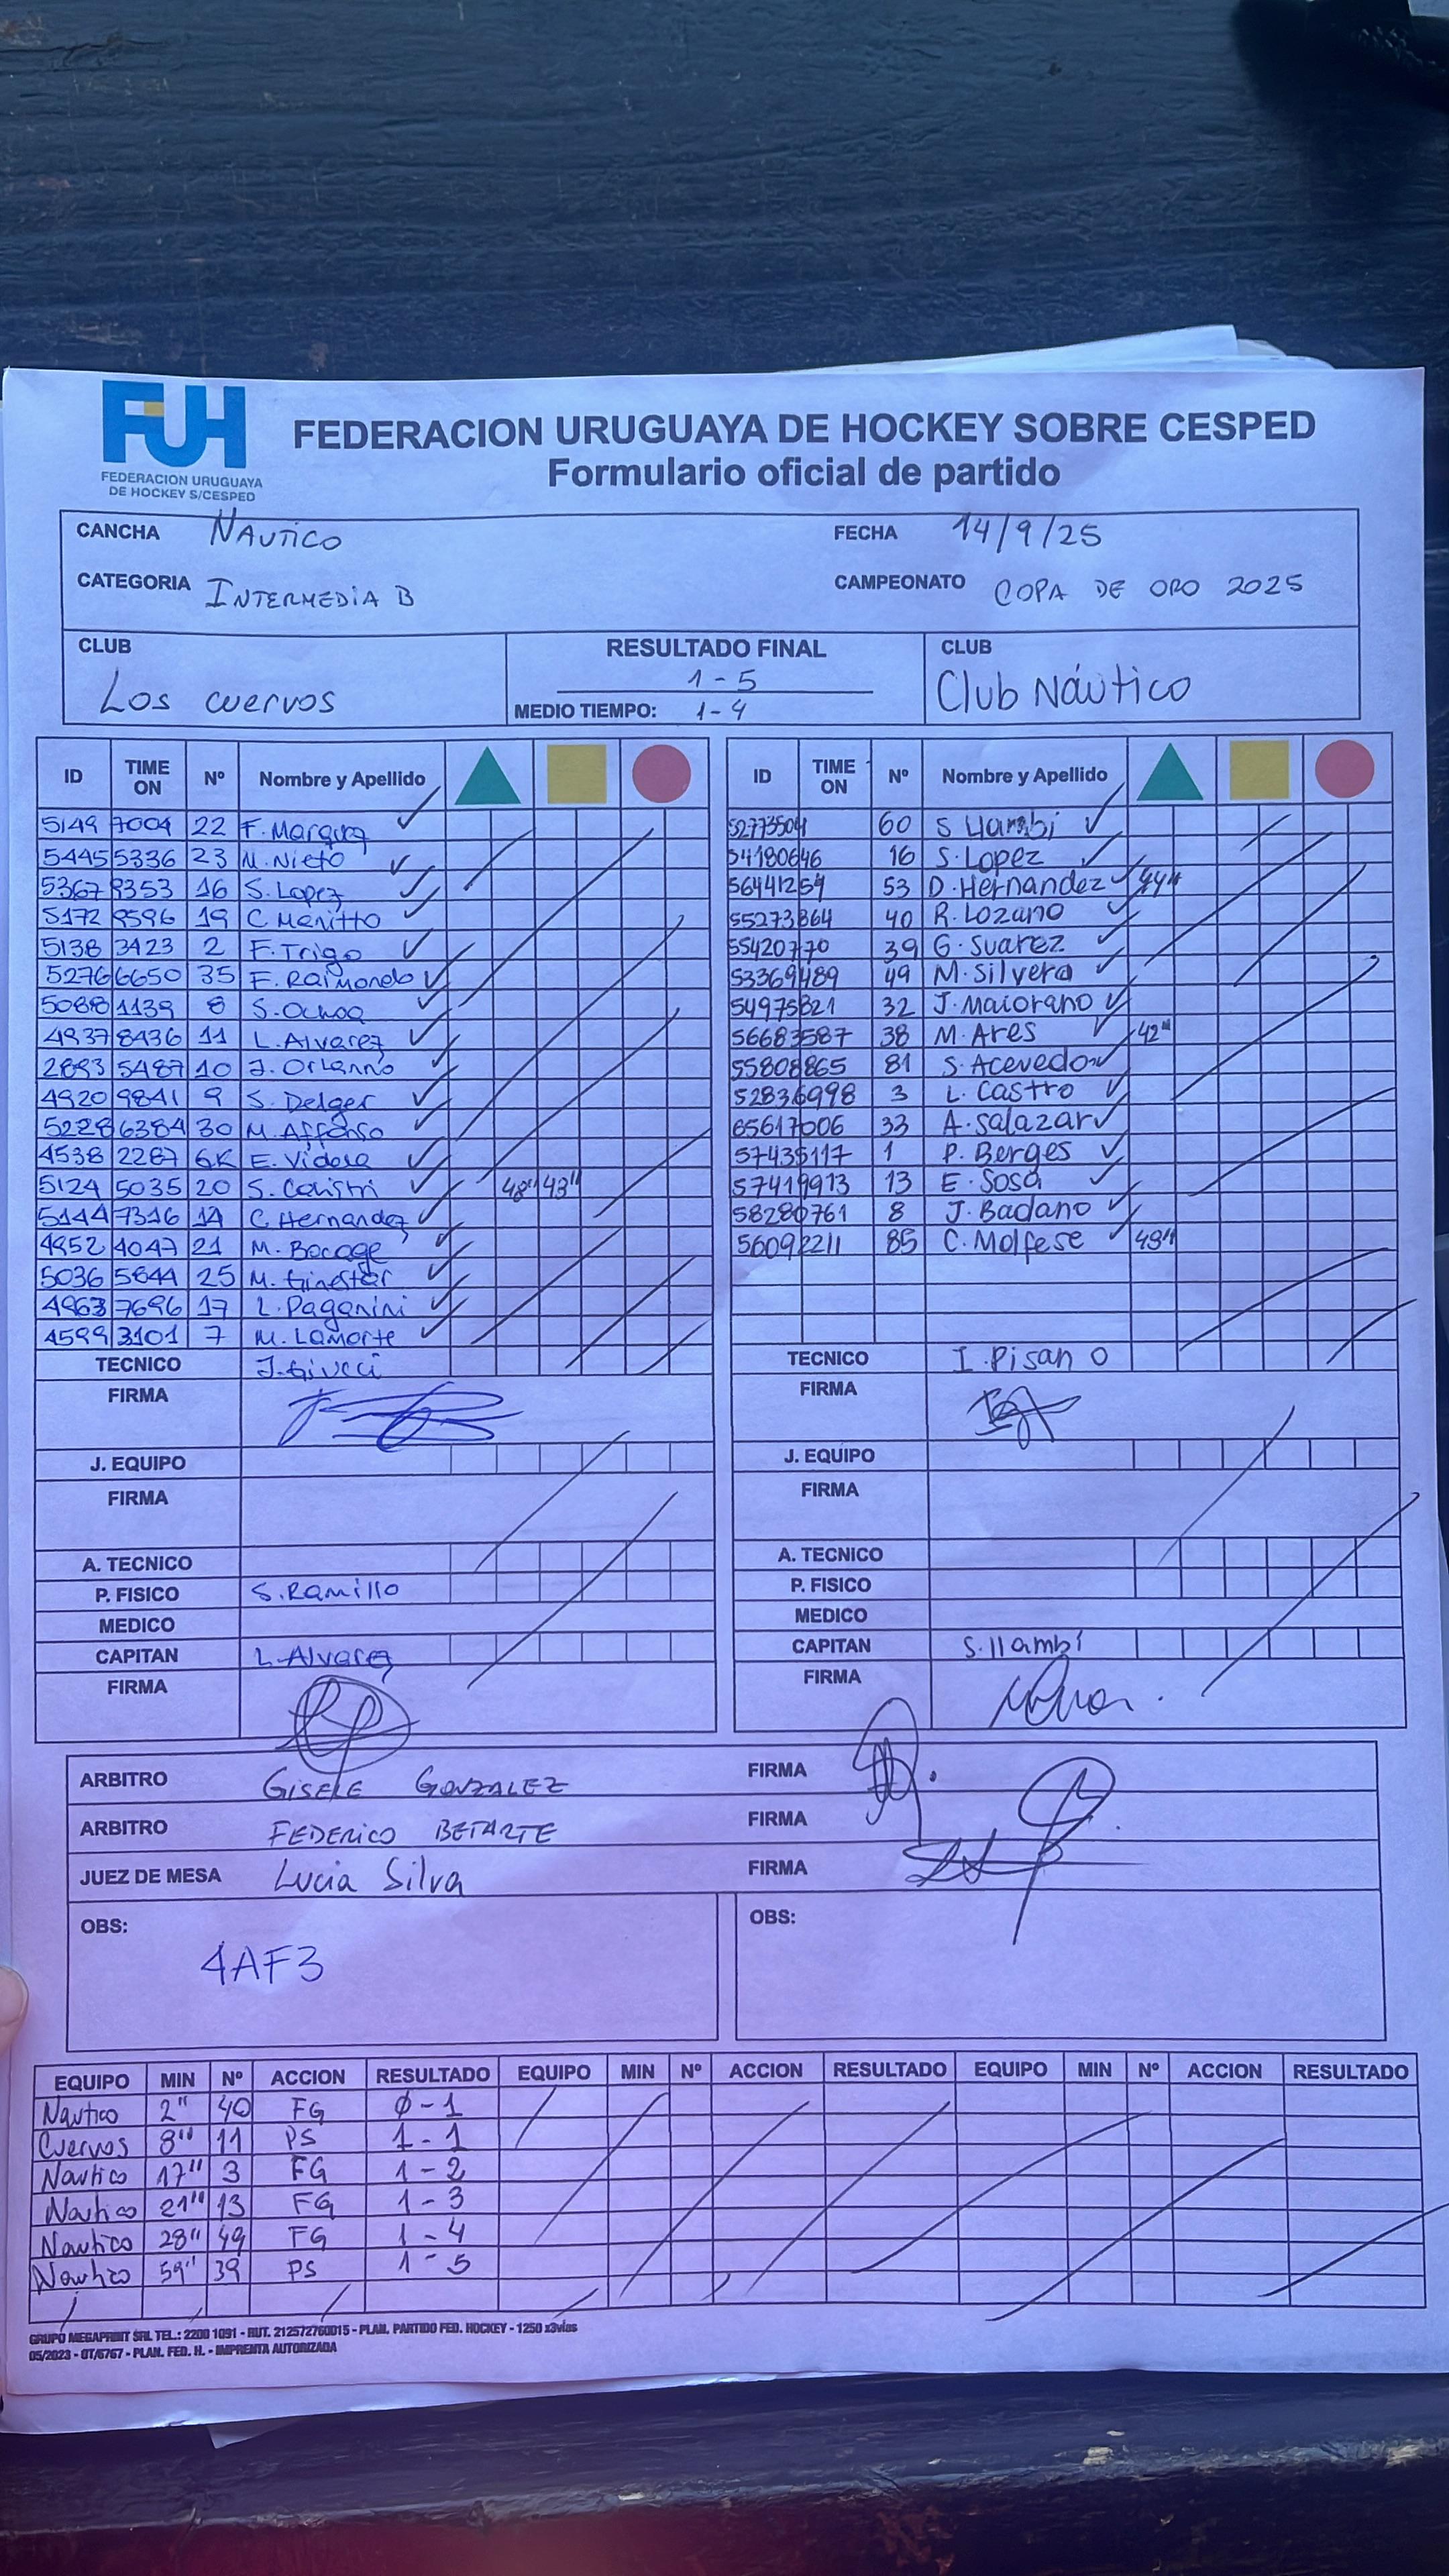 FUH
FEDERACION URUGUAYA
DE HOCKEY S/CESPED
FEDERACION URUGUAYA DE HOCKEY SOBRE CESPED
Formulario oficial de partido
CANCHA NAUTICO FECHA 14/9/25
CATEGORIA INTERMEDIA B CAMPEONATO COPA DE ORO 2025
CLUB RESULTADO FINAL CLUB
Los cuervos 1-5 Club Náutico
MEDIO TIEMPO: 1-4
ID TIME ON Nº Nombre y Apellido ID TIME ON Nº Nombre y Apellido
5149 7004 22 F. Marquez 52773504 60 S Llambi
5445 5336 23 M. Nieto 54180646 16 S. Lopez
5367 8353 16 S. Lopez 56441254 53 D. Hernandez 44"
5172 9596 19 C. Menitto 55273864 40 R. Lozano
5138 3423 2 F. Trigo 55420770 39 G. Suarez
5276 6650 35 F. Raimondo 53369489 49 M. Silvera
5088 1139 8 S. Ochoa 54975821 32 J. Maiorano
4937 8436 11 L. Alvarez 56683587 38 M. Ares 42"
2893 5487 10 J. Orlanno 55808865 81 S. Acevedo
4920 9841 9 S. Delger 52836998 3 L. Castro
5228 6384 30 M. Affonso 65617006 33 A. Salazar
4538 2287 GK E. Videla 57435117 1 P. Berges
5124 5035 20 S. Calistri 48" 43" 57419913 13 E. Sosa
5144 7316 14 C. Hernandez 58280761 8 J. Badano
4952 4047 21 M. Bocage 56092211 85 C. Molfese 49"
5036 5844 25 M. Ginestar
4963 7696 17 L. Paganini
4599 3101 7 M. Lamorte
TECNICO J. Giucci TECNICO I. Pisano
FIRMA FIRMA
J. EQUIPO J. EQUIPO
FIRMA FIRMA
A. TECNICO A. TECNICO
P. FISICO S. Ramillo P. FISICO
MEDICO MEDICO
CAPITAN L. Alvarez CAPITAN S. llambí
FIRMA FIRMA
ARBITRO GISELE GONZALEZ FIRMA
ARBITRO FEDERICO BETARTE FIRMA
JUEZ DE MESA Lucia Silva FIRMA
OBS: OBS:
4AF3
EQUIPO MIN Nº ACCION RESULTADO EQUIPO MIN Nº ACCION RESULTADO EQUIPO MIN Nº ACCION RESULTADO
Nautico 2" 40 FG 0-1
Cuervos 8" 11 PS 1-1
Nautico 17" 3 FG 1-2
Nautico 21" 13 FG 1-3
Nautico 28" 49 FG 1-4
Nautico 59" 39 PS 1-5
GRUPO MEGAPRINT SRL TEL.: 2200 1091 - RUT. 212572760015 - PLAN. PARTIDO FED. HOCKEY - 1250 x3vías
05/2023 - OT/6767 - PLAN. FED. H. - IMPRENTA AUTORIZADA